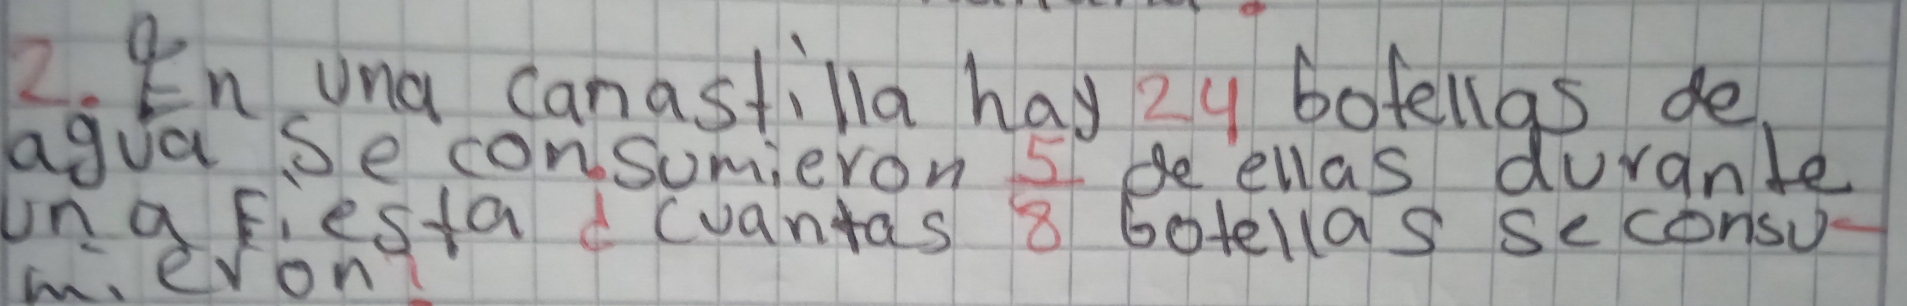 2. En una canastilla hay 24 botellas de
agua se consumieron 5/8 de ellas durante
una fiesta ¿ cuantas botellas se consu-
mieron?